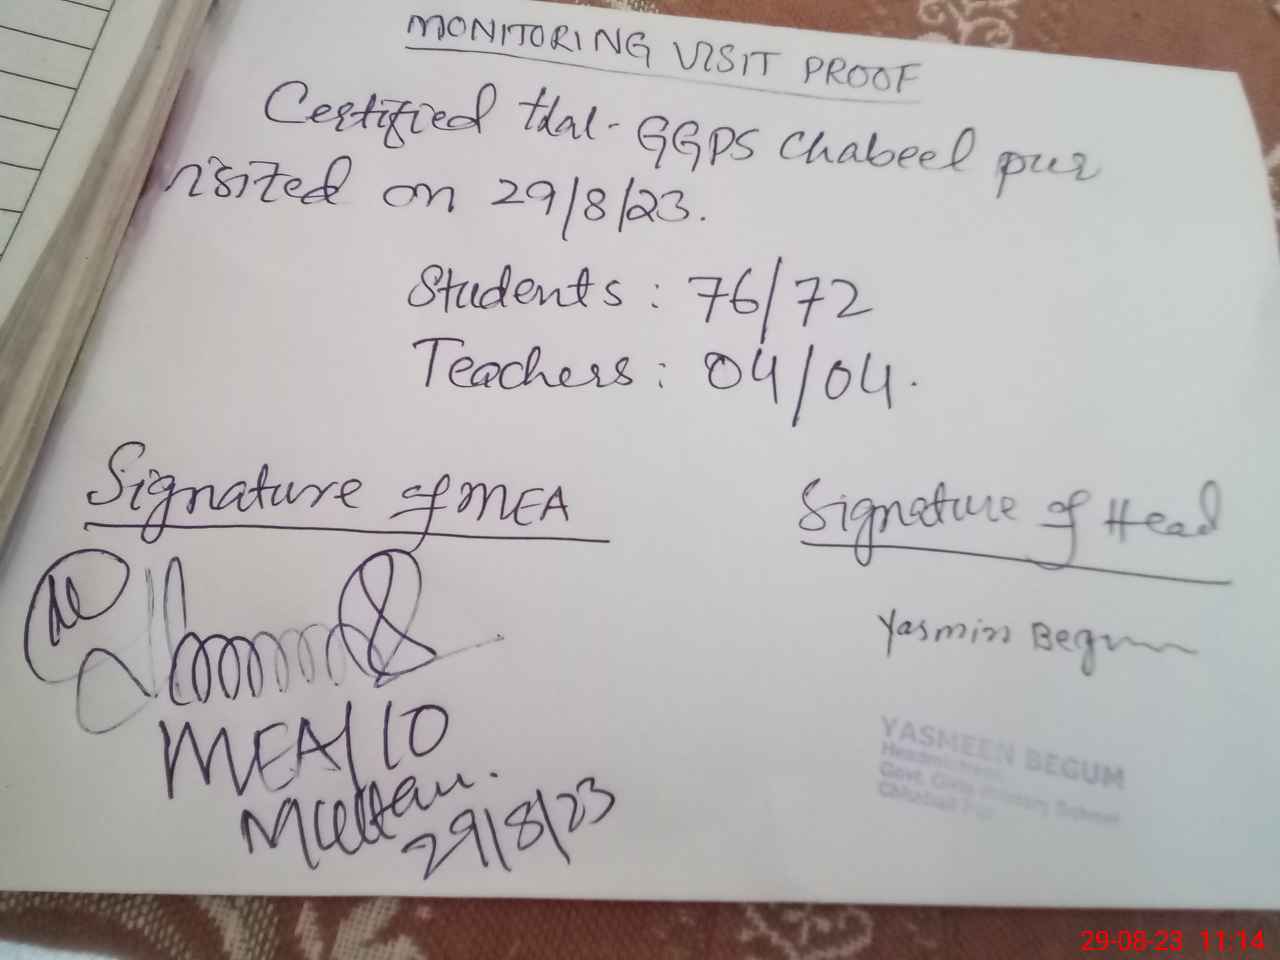 MONITORING VISIT PROOF
Certified that GGPS Chabeel pur
visited on 29/8/23.
Students : 76/72
Teachers : 04/04.
Signature of MEA
Signature of Head
Yasmin Begum
MEA/10
Multan.
29/8/23
YASMEEN BEGUM
Headmistress
Govt. Girls Primary School
29-08-23 11:14